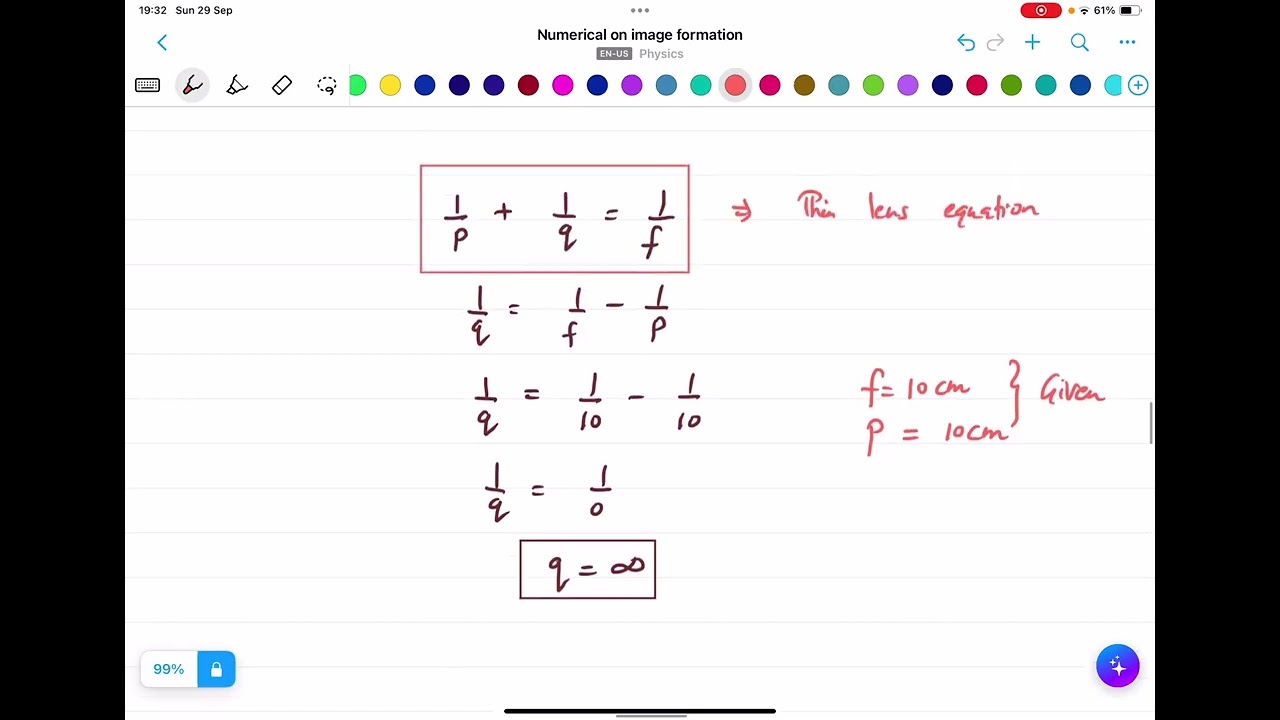 19:32 Sun 29 Sep
61%
Numerical on image formation
EN-US Physics
1/p + 1/q = 1/f ⇒ Thin lens equation
1/q = 1/f - 1/p
1/q = 1/10 - 1/10
f = 10 cm } Given
p = 10 cm
1/q = 1/0
q = ∞
99%